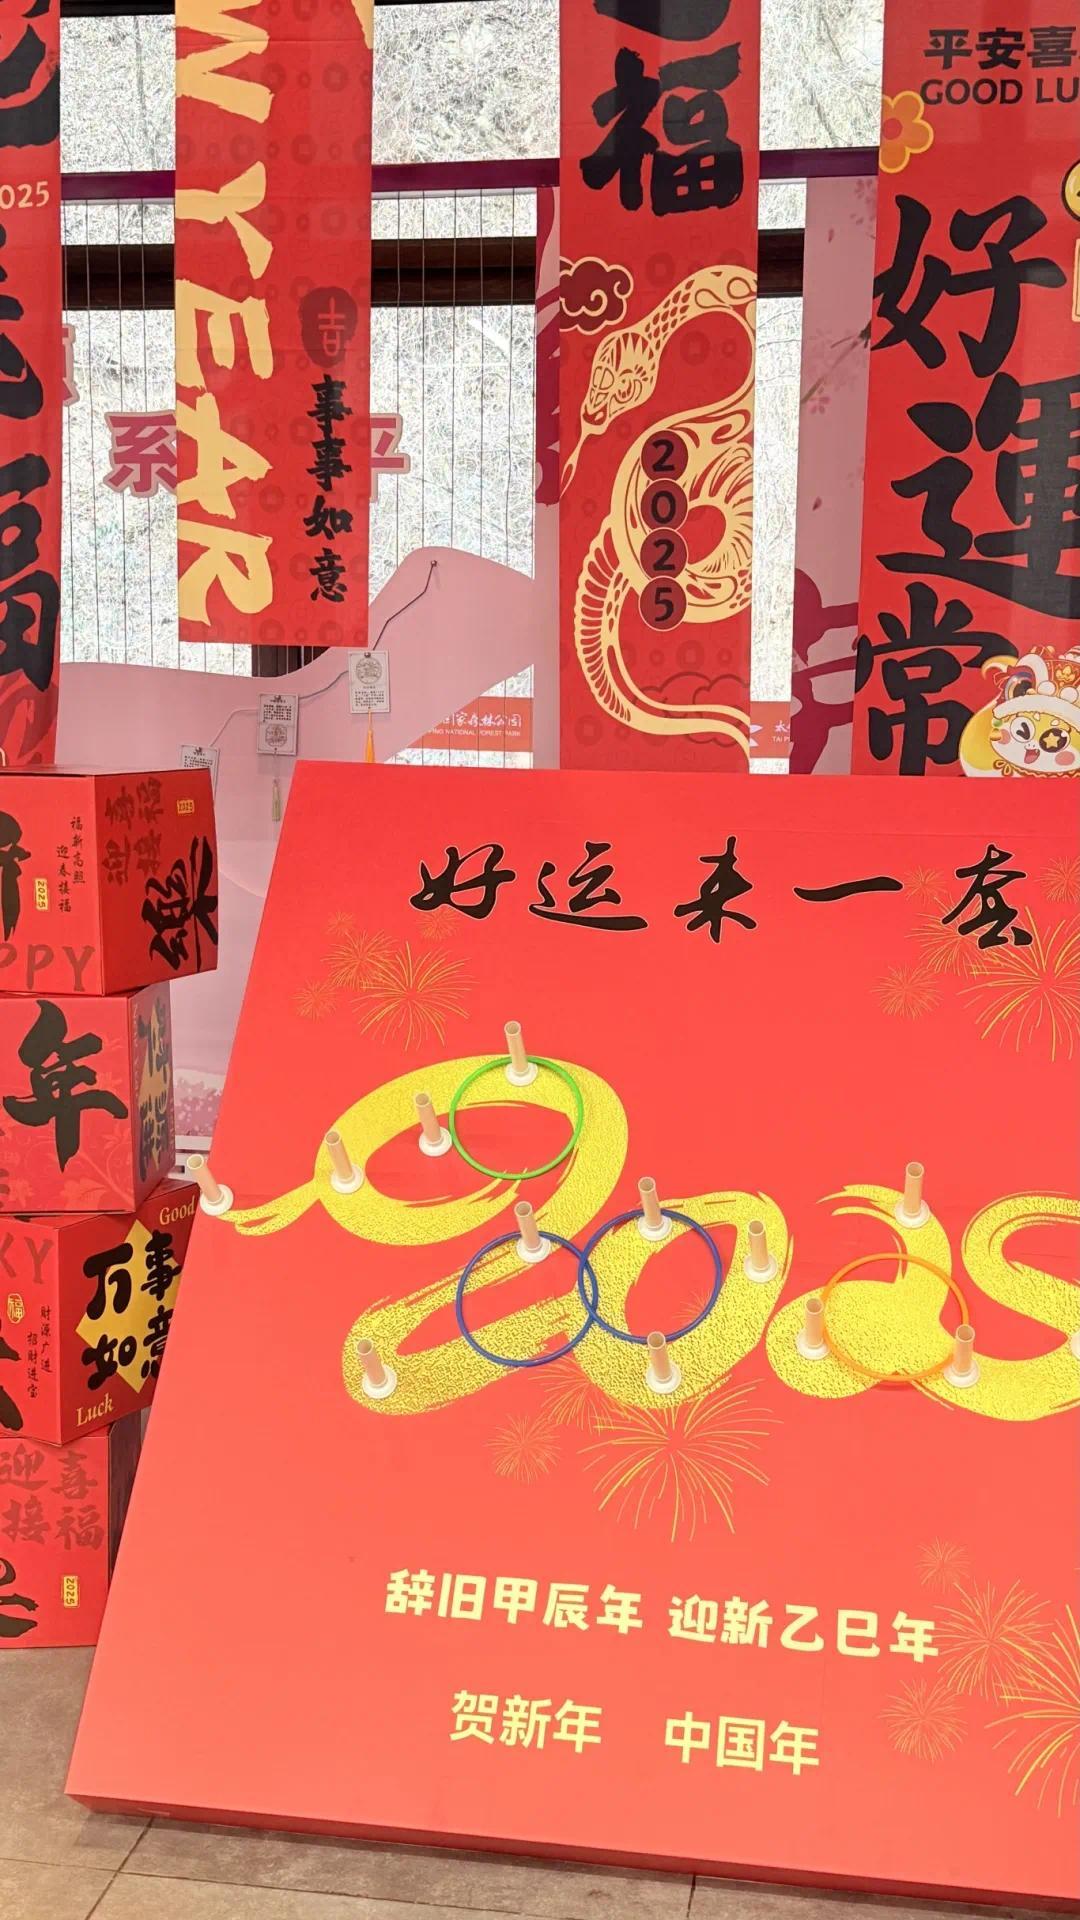 2025
福
W YEAR
吉
事事如意
福
2025
平安喜
GOOD LU
好運常
系
平
国家森林公园
PING NATIONAL FOREST PARK
太
TAI P
福新高照
迎春接福
2025
迎喜接福
2025
PPY
年
Good
万事如意
Luck
KY
福
财源广进
招财进宝
迎喜
接福
2025
好运来一套
2025
辞旧甲辰年 迎新乙巳年
贺新年 中国年